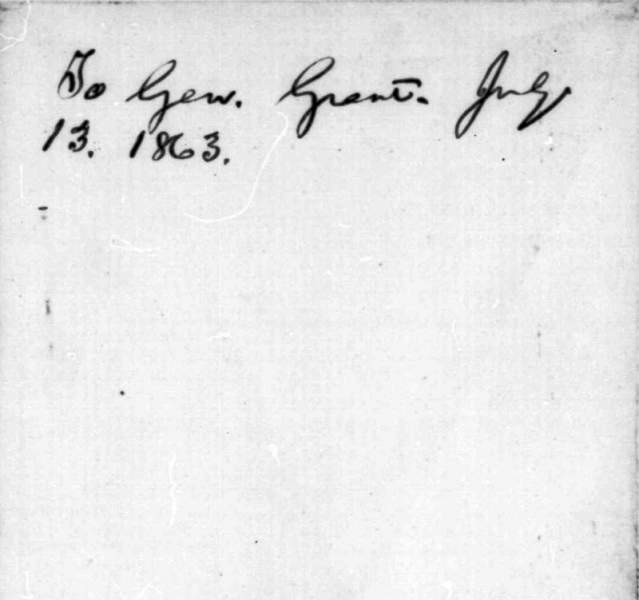 To Gen. Grant. July
13. 1863.